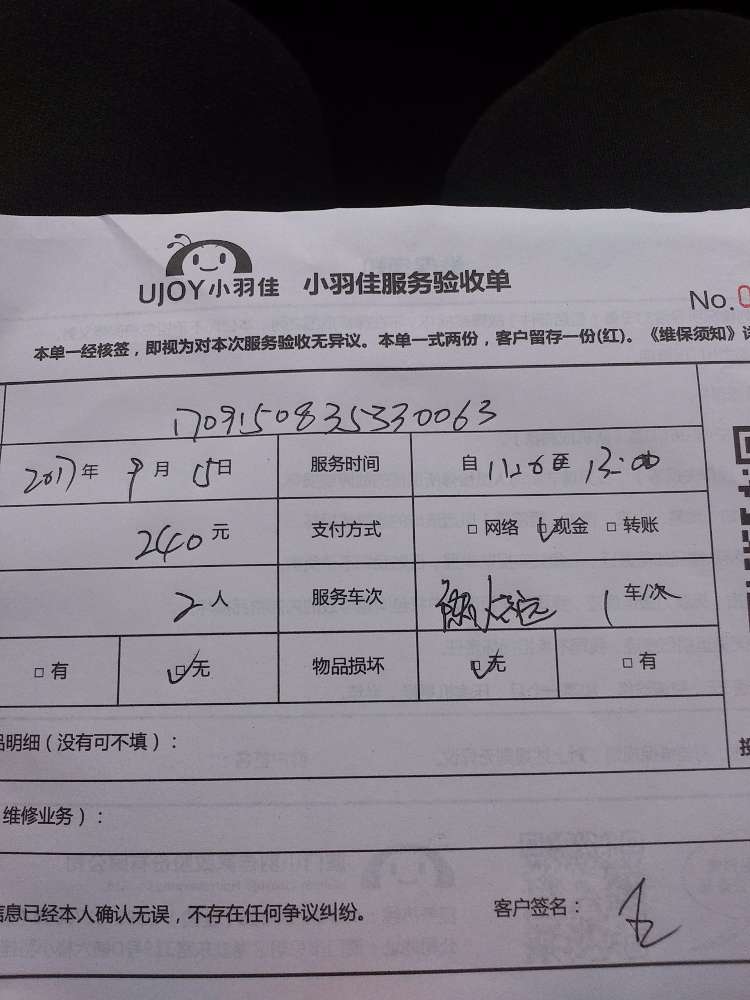 UJOY小羽佳 小羽佳服务验收单
No.0
本单一经核签，即视为对本次服务验收无异议。本单一式两份，客户留存一份(红)。《维保须知》
1709150835330063
2017年 9月 15日 服务时间 自 11:26 至 13:00
240元 支付方式 □网络 ☑现金 □转账
2人 服务车次 1 车/次
□有 ☑无 物品损坏 ☑无 □有
品明细（没有可不填）：
维修业务）：
信息已经本人确认无误，不存在任何争议纠纷。 客户签名：